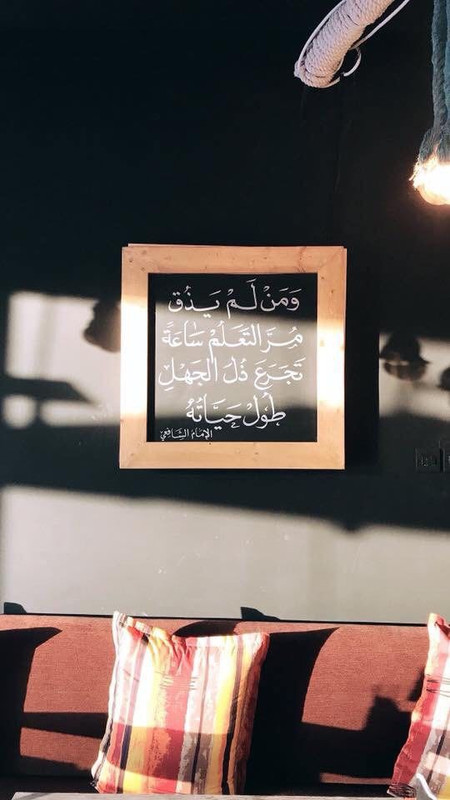 وَمَنْ لَمْ يَذُق
مُرَّ التَّعَلُمْ سَاعَةً
تَجَرَعِ ذُلَ الجَهْلِ
طُوُلْ حَيَّاتُهُ
الإمام الشافعي